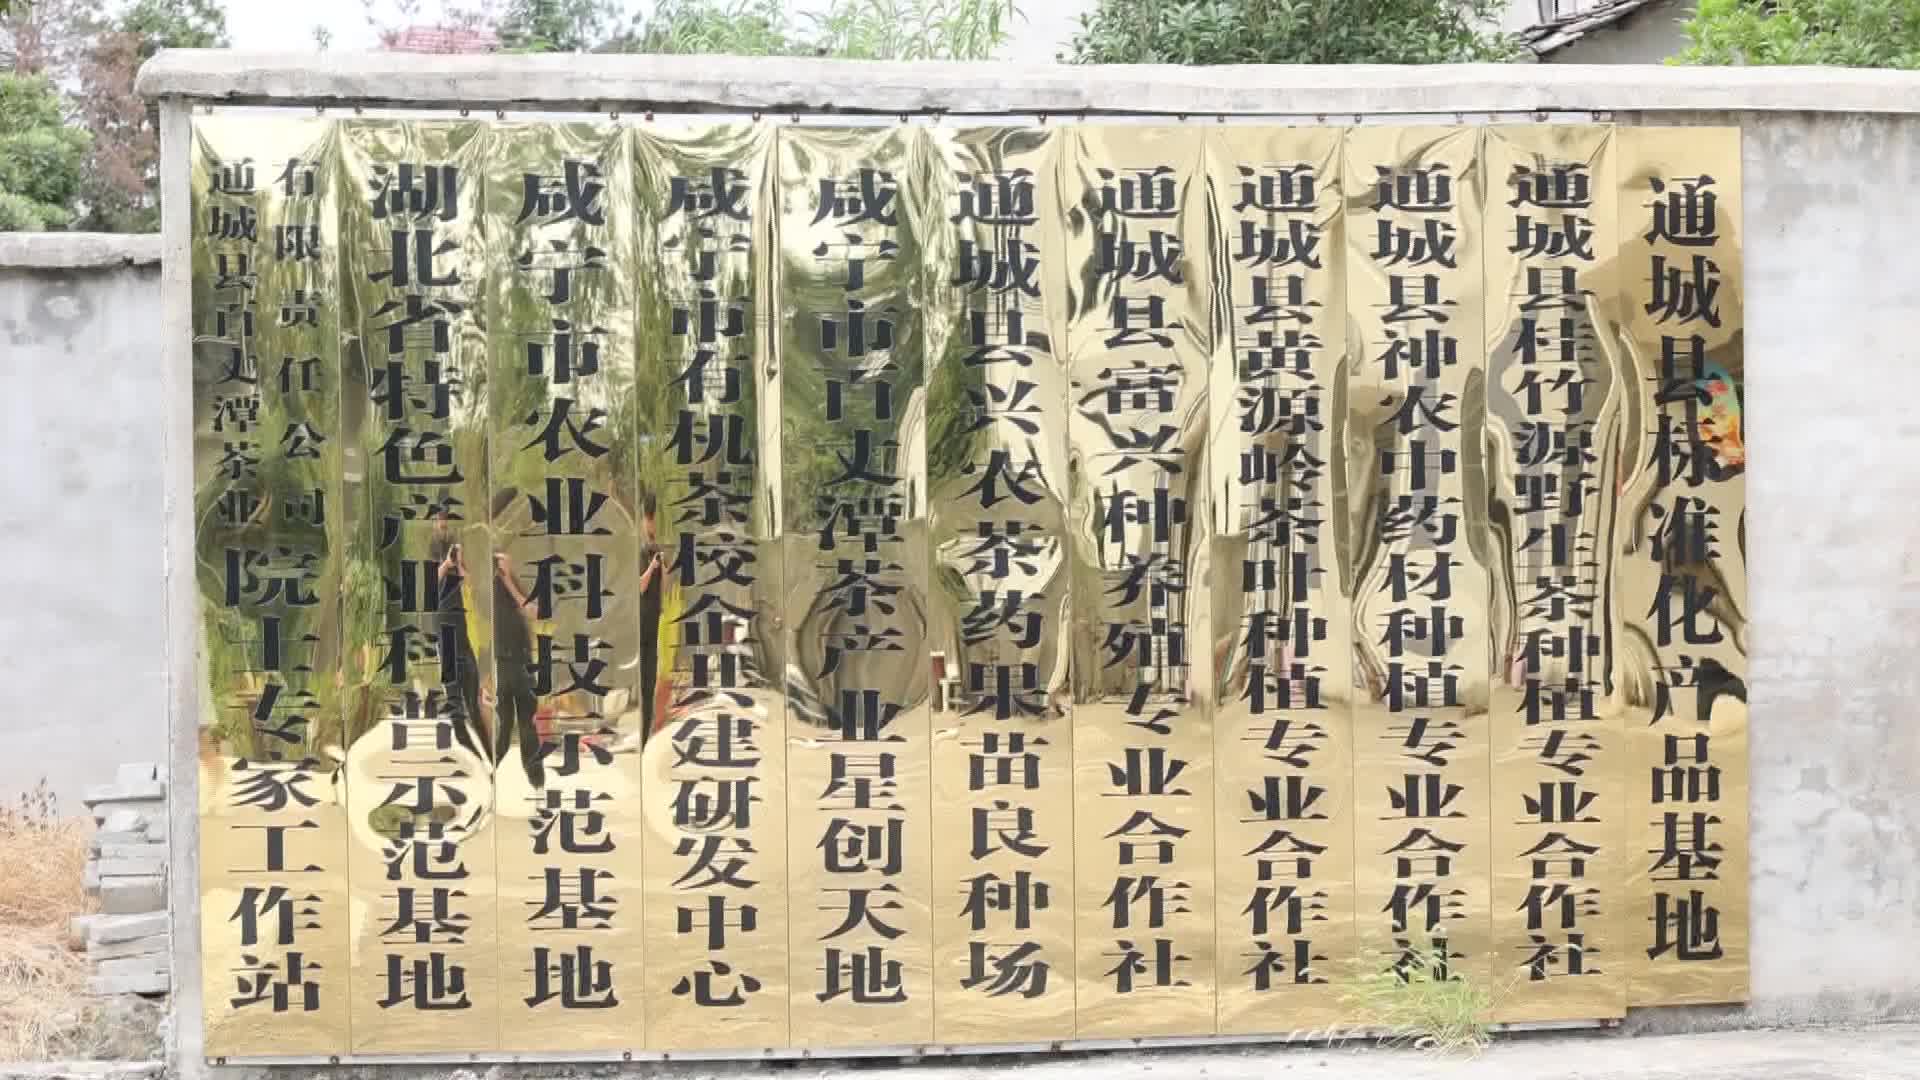 通城县百丈潭茶业
有限责任公司
院士专家工作站
湖北省特色产业科普示范基地
咸宁市农业科技示范基地
咸宁市有机茶校企共建研发中心
咸宁市百丈潭茶产业星创天地
通城县兴农茶药果苗良种场
通城县富兴种养殖专业合作社
通城县黄源岭茶叶种植专业合作社
通城县神农中药材种植专业合作社
通城县桂竹源野生茶种植专业合作社
通城县标准化产品基地